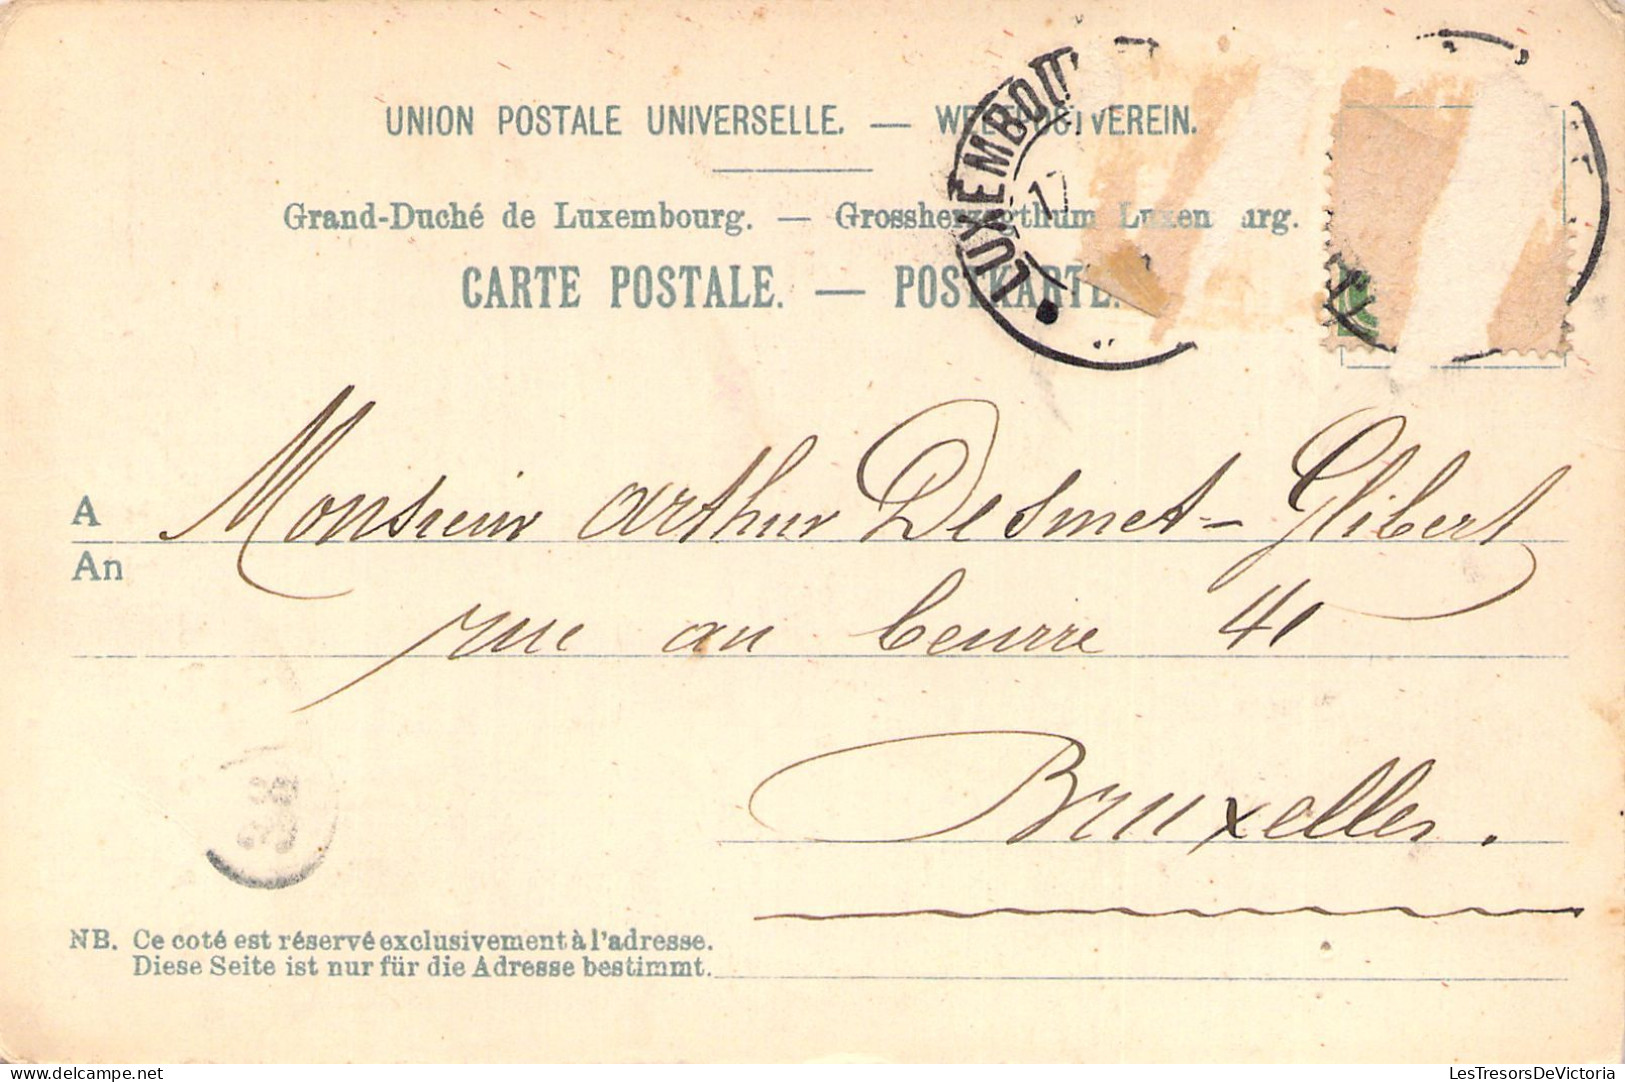 UNION POSTALE UNIVERSELLE. — WELTPOSTVEREIN.
Grand-Duché de Luxembourg. — Grossherzogthum Luxemburg.
CARTE POSTALE. — POSTKARTE.
LUXEMBOU
17
A Monsieur Arthur Desmet-Glibert
An
rue au beurre 41
Bruxelles.
NB. Ce coté est réservé exclusivement à l'adresse.
Diese Seite ist nur für die Adresse bestimmt.
delcampe.net
LesTresorsDeVictoria